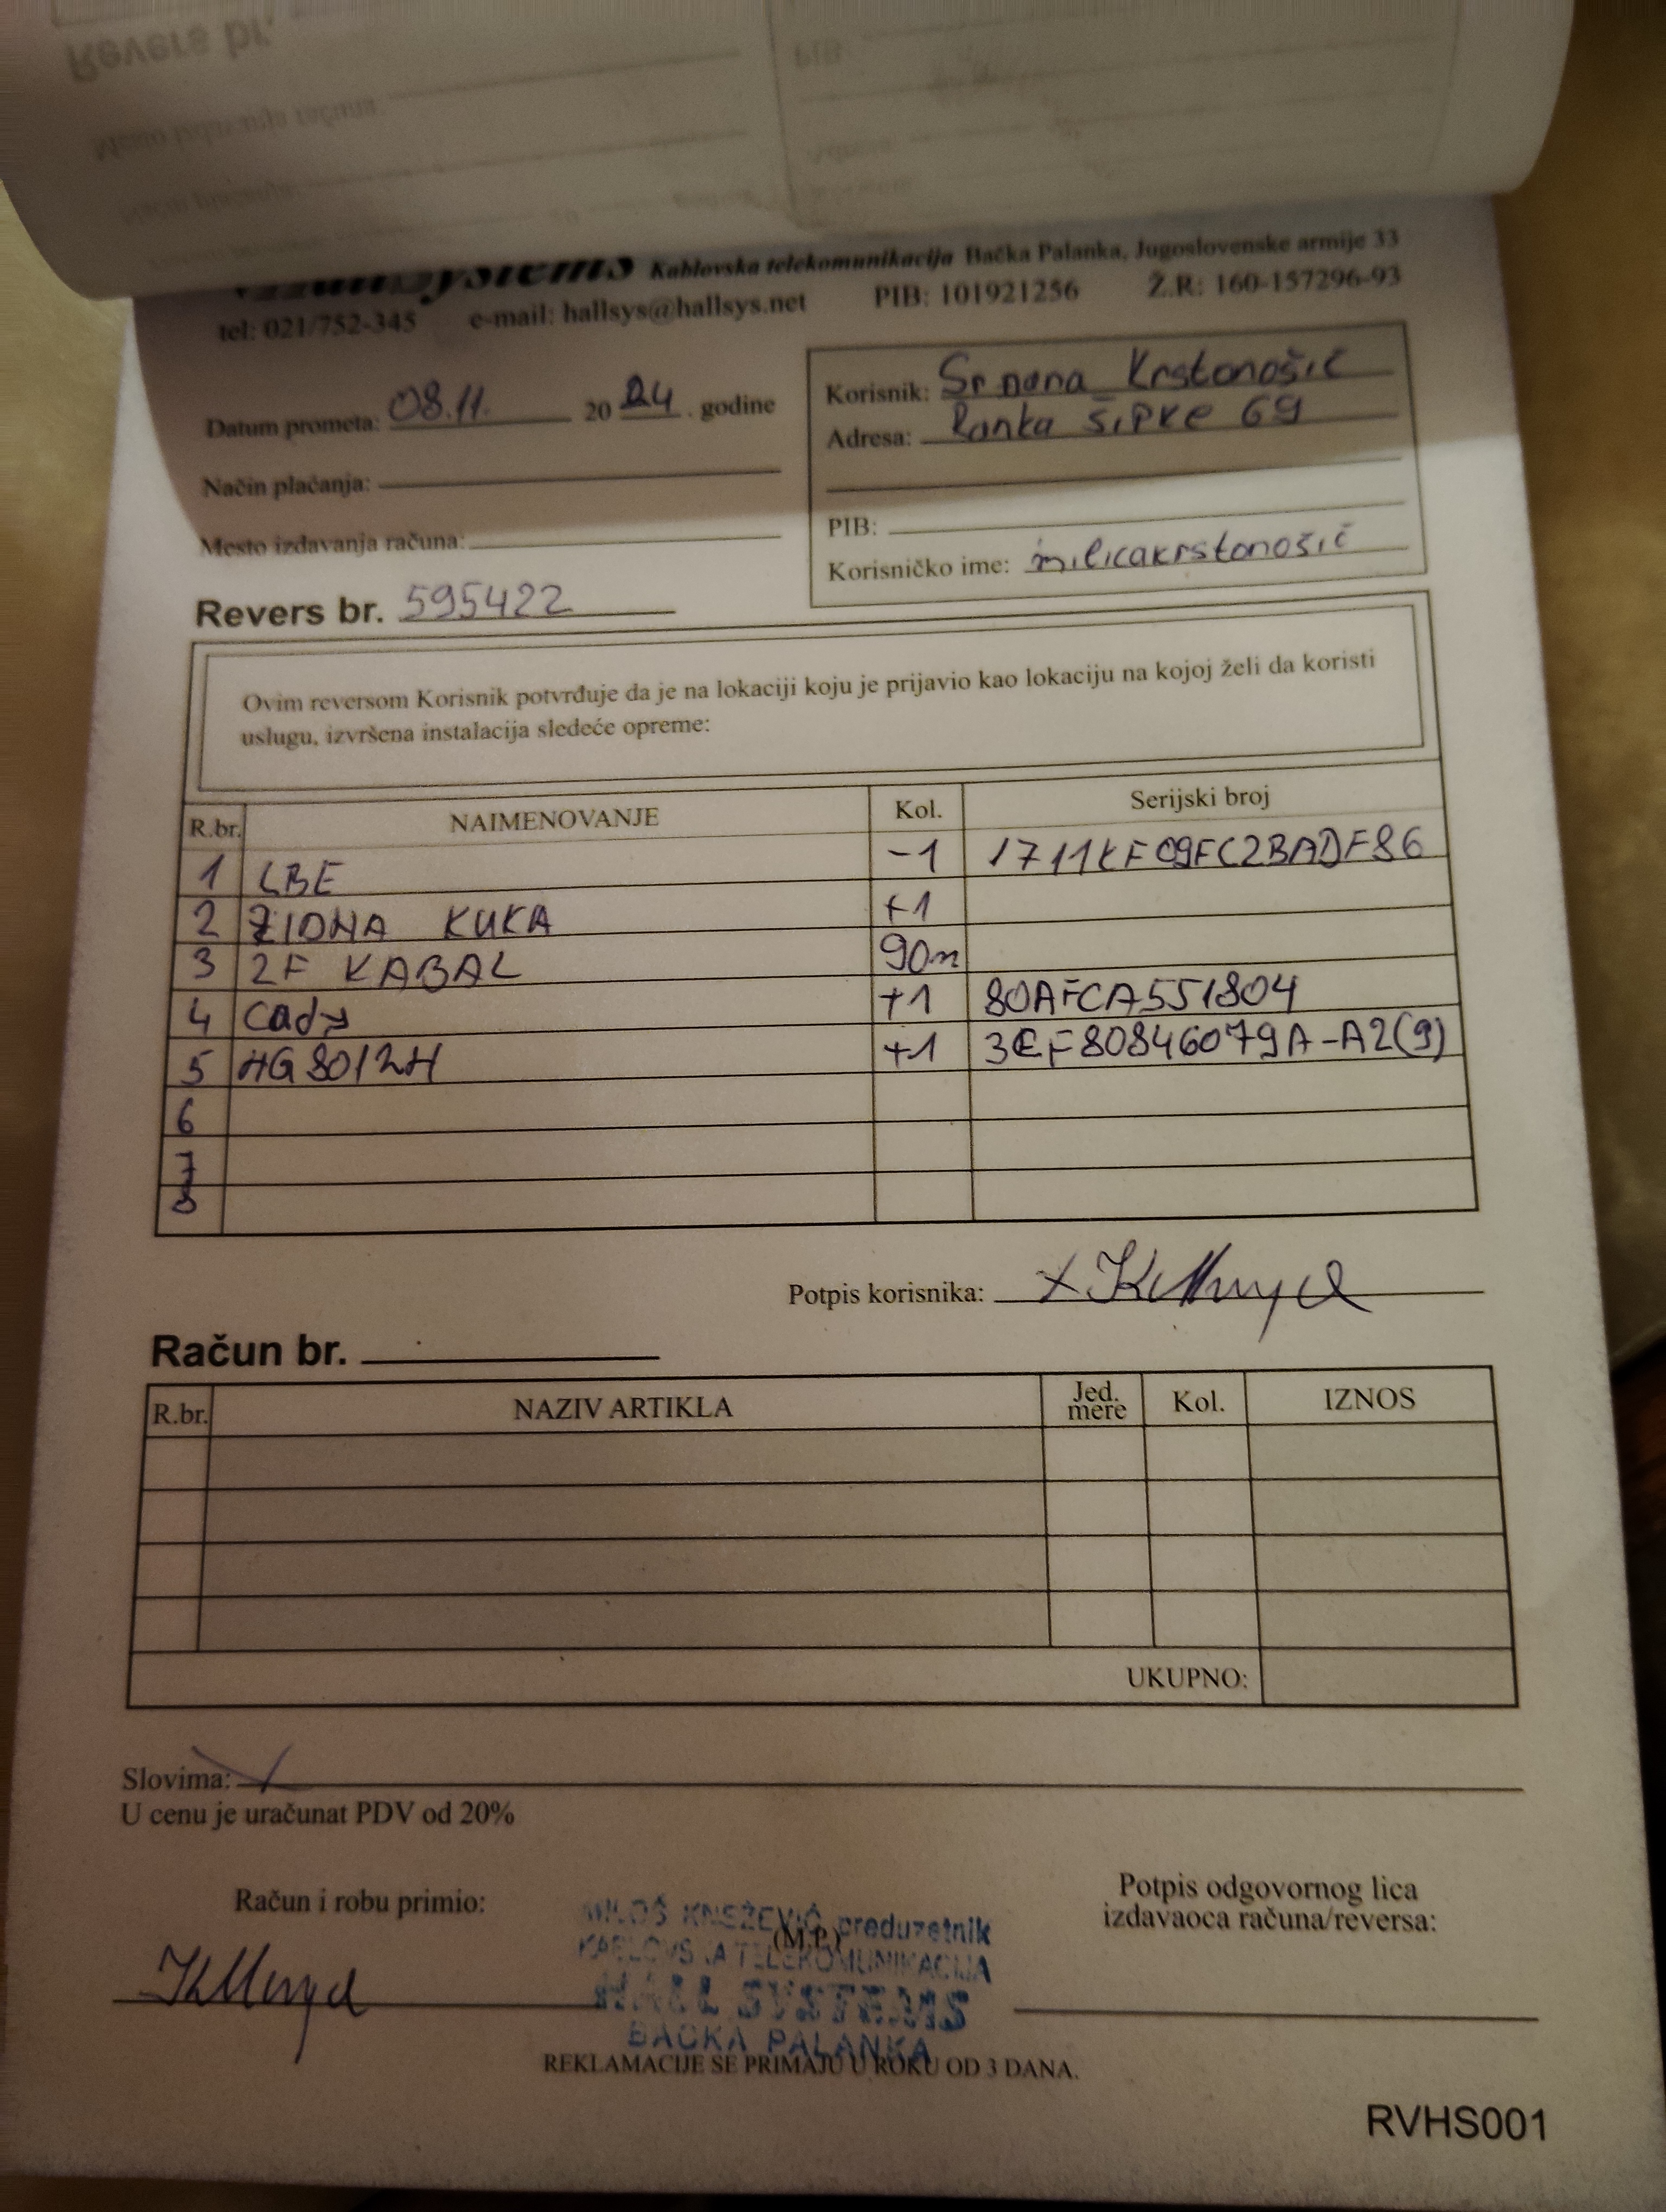 HallSystems Kablovska telekomunikacija Bačka Palanka, Jugoslovenske armije 33
tel: 021/752-345 e-mail: hallsys@hallsys.net PIB: 101921256 Ž.R: 160-157296-93
Datum prometa: 08.11. 20 24. godine
Način plaćanja:
Mesto izdavanja računa:
Korisnik: Srnana Krstonošić
Adresa: Ranka Šipke 69
PIB:
Korisničko ime: milicakrstonošić
Revers br. 595422
Ovim reversom Korisnik potvrđuje da je na lokaciji koju je prijavio kao lokaciju na kojoj želi da koristi
uslugu, izvršena instalacija sledeće opreme:
R.br. NAIMENOVANJE Kol. Serijski broj
1 LBE -1 1711KF09FC2BADF86
2 ZIDNA KUKA +1
3 2F KABAL 90m
4 Cady +1 80AFCA551804
5 HG8012H +1 3CF80846079A-A2(9)
6
7
8
Potpis korisnika:
Račun br.
R.br. NAZIV ARTIKLA Jed. mere Kol. IZNOS
UKUPNO:
Slovima:
U cenu je uračunat PDV od 20%
Račun i robu primio:
MILOŠ KNEŽEVIĆ preduzetnik
(M.P.)
KABLOVSKA TELEKOMUNIKACIJA
HALL SYSTEMS
BAČKA PALANKA
Potpis odgovornog lica
izdavaoca računa/reversa:
REKLAMACIJE SE PRIMAJU U ROKU OD 3 DANA.
RVHS001